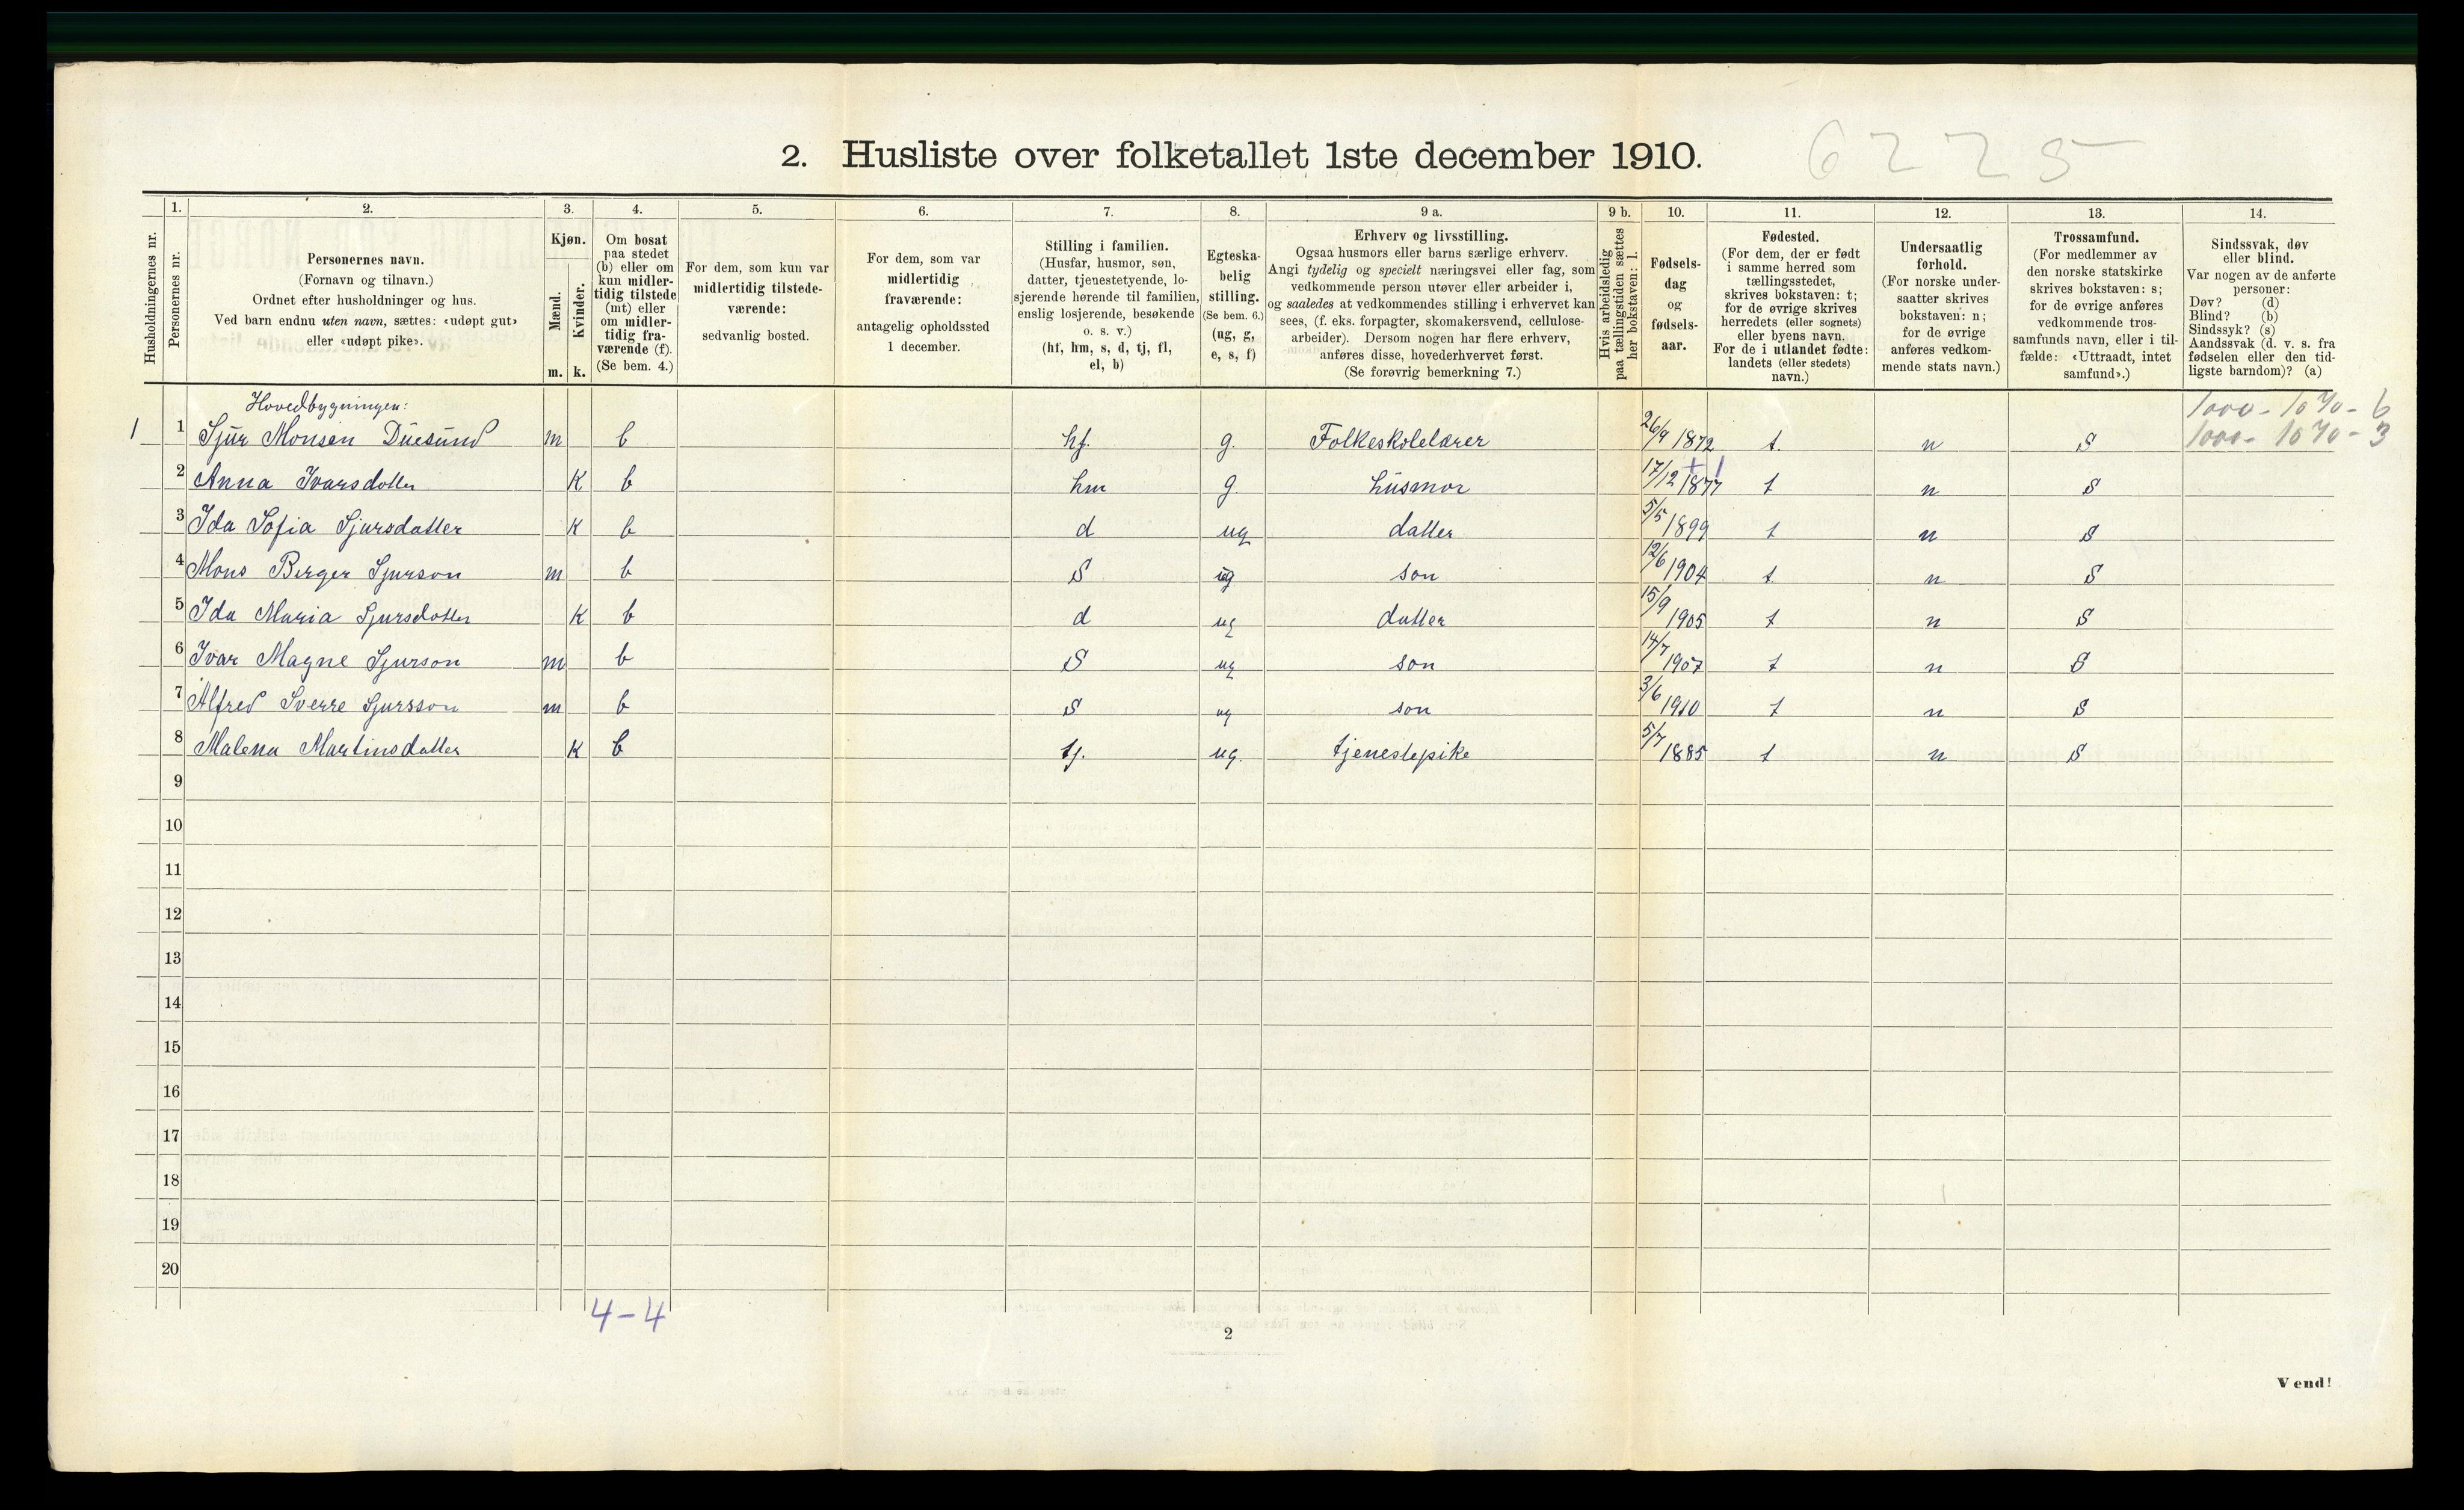 2. Husliste over folketallet 1ste december 1910.
6225
1. 2. 3. 4. 5. 6. 7. 8. 9 a. 9 b. 10. 11. 12. 13. 14.
Husholdningernes nr.
Personernes nr.
Personernes navn.
(Fornavn og tilnavn.)
Ordnet efter husholdninger og hus.
Ved barn endnu uten navn, sættes: «udøpt gut»
eller «udøpt pike».
Kjøn.
Mænd.
Kvinder.
m. k.
Om bosat
paa stedet
(b) eller om
kun midler-
tidig tilstede
(mt) eller
om midler-
tidig fra-
værende (f).
(Se bem. 4.)
For dem, som kun var
midlertidig tilstede-
værende:
sedvanlig bosted.
For dem, som var
midlertidig
fraværende:
antagelig opholdssted
1 december.
Stilling i familien.
(Husfar, husmor, søn,
datter, tjenestetyende, lo-
sjerende hørende til familien,
enslig losjerende, besøkende
o. s. v.)
(hf, hm, s, d, tj, fl,
el, b)
Egteska-
belig
stilling.
(Se bem. 6.)
(ug, g,
e, s, f)
Erhverv og livsstilling.
Ogsaa husmors eller barns særlige erhverv.
Angi tydelig og specielt næringsvei eller fag, som
vedkommende person utøver eller arbeider i,
og saaledes at vedkommendes stilling i erhvervet kan
sees, (f. eks. forpagter, skomakersvend, cellulose-
arbeider). Dersom nogen har flere erhverv,
anføres disse, hovederhvervet først.
(Se forøvrig bemerkning 7.)
Hvis arbeidsledig
paa tællingstiden sættes
her bokstaven: l.
Fødsels-
dag
og
fødsels-
aar.
Fødested.
(For dem, der er født
i samme herred som
tællingsstedet,
skrives bokstaven: t;
for de øvrige skrives
herredets (eller sognets)
eller byens navn.
For de i utlandet fødte:
landets (eller stedets)
navn.)
Undersaatlig
forhold.
(For norske under-
saatter skrives
bokstaven: n;
for de øvrige
anføres vedkom-
mende stats navn.)
Trossamfund.
(For medlemmer av
den norske statskirke
skrives bokstaven: s;
for de øvrige anføres
vedkommende tros-
samfunds navn, eller i til-
fælde: «Uttraadt, intet
samfund».)
Sindssvak, døv
eller blind.
Var nogen av de anførte
personer:
Døv? (d)
Blind? (b)
Sindssyk? (s)
Aandssvak (d. v. s. fra
fødselen eller den tid-
ligste barndom)? (a)
Hovedbygningen:
1000 - 1070 - 6
1000 - 1070 - 3
1 1 Sjur Monsen Duesund m b hf. g. Folkeskolelærer 26/9 1872 t. n S
2 Anna Ivarsdatter K b hm g. husmor 17/12 1877 t n S
3 Ida Sofia Sjursdatter K b d ug datter 5/5 1899 t n S
4 Mons Birger Sjurson m b S ug son 12/6 1904 t n S
5 Ida Maria Sjursdatter K b d ug datter 15/9 1905 t n S
6 Ivar Magne Sjurson m b S ug son 14/7 1907 t n S
7 Alfred Sverre Sjursson m b S ug son 3/6 1910 t n S
8 Malena Martinsdatter K b tj. ug. tjenestepike 5/7 1885 t n S
9
10
11
12
13
14
15
16
17
18
19
20
4-4
2
Vend!